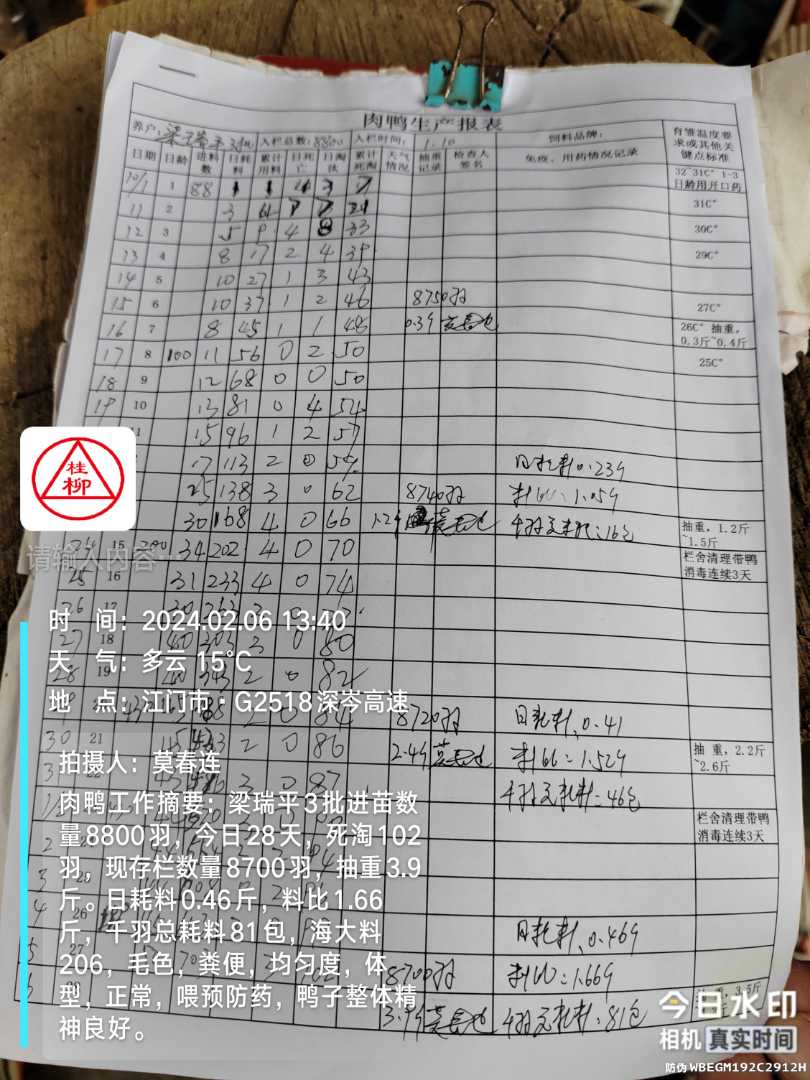 肉鸭生产报表
养户: 梁瑞平3批 入栏总数: 8800 入栏时间: 1.10 饲料品牌:
日期 日龄 进料数 日耗料 累计用料 日死亡 日淘汰 累计死淘 天气情况 抽重记录 检查人签名 免疫、用药情况记录 育雏温度要求或其他关键点标准
10/1 1 88 1 1 4 3 7 32~31C° 1-3日龄用开口药
11 2 3 4 21 31C°
12 3 5 9 4 8 33 30C°
13 4 8 17 2 4 39 29C°
14 5 10 27 1 3 43
15 6 10 37 1 2 46 8750羽 27C°
16 7 8 45 1 1 48 0.3斤 莫春连 26C° 抽重,0.3斤~0.4斤
17 8 100 11 56 0 2 50 25C°
18 9 12 68 0 0 50
19 10 13 81 0 4 54
11 15 96 1 2 57
17 113 2 0 59 日耗料0.23斤
25 138 3 0 62 8740羽 料比:1.05斤
30 168 4 0 66 1.2斤 莫春连 千羽总耗料:16包 抽重,1.2斤~1.5斤
24 15 200 34 202 4 0 70 栏舍清理带鸭消毒连续3天
25 16 31 233 4 0 74
26 17 30 263 3 0
27 18 40 303 3 0 80
28 19 40 343 2 0 82
2 0 84 8720羽 日耗料,0.41
30 21 45 2 0 86 2.4斤 莫春连 料比=1.52斤 抽重,2.2斤~2.6斤
22 0 87 千羽总耗料=46包
栏舍清理带鸭消毒连续3天
2
3
4 26 日耗料,0.46斤
5 27 8700羽 料比=1.66斤
6 28 3.9斤 莫春连 千羽总耗料:81包 3.5斤
桂柳
请输入内容…
时 间: 2024.02.06 13:40
天 气: 多云 15℃
地 点: 江门市·G2518深岑高速
拍摄人: 莫春连
肉鸭工作摘要: 梁瑞平3批进苗数
量8800羽,今日28天,死淘102
羽,现存栏数量8700羽,抽重3.9
斤。日耗料0.46斤,料比1.66
斤,千羽总耗料81包,海大料
206,毛色,粪便,均匀度,体
型,正常,喂预防药,鸭子整体精
神良好。
今日水印
相机 真实时间
防伪 WBEGM192C2912H